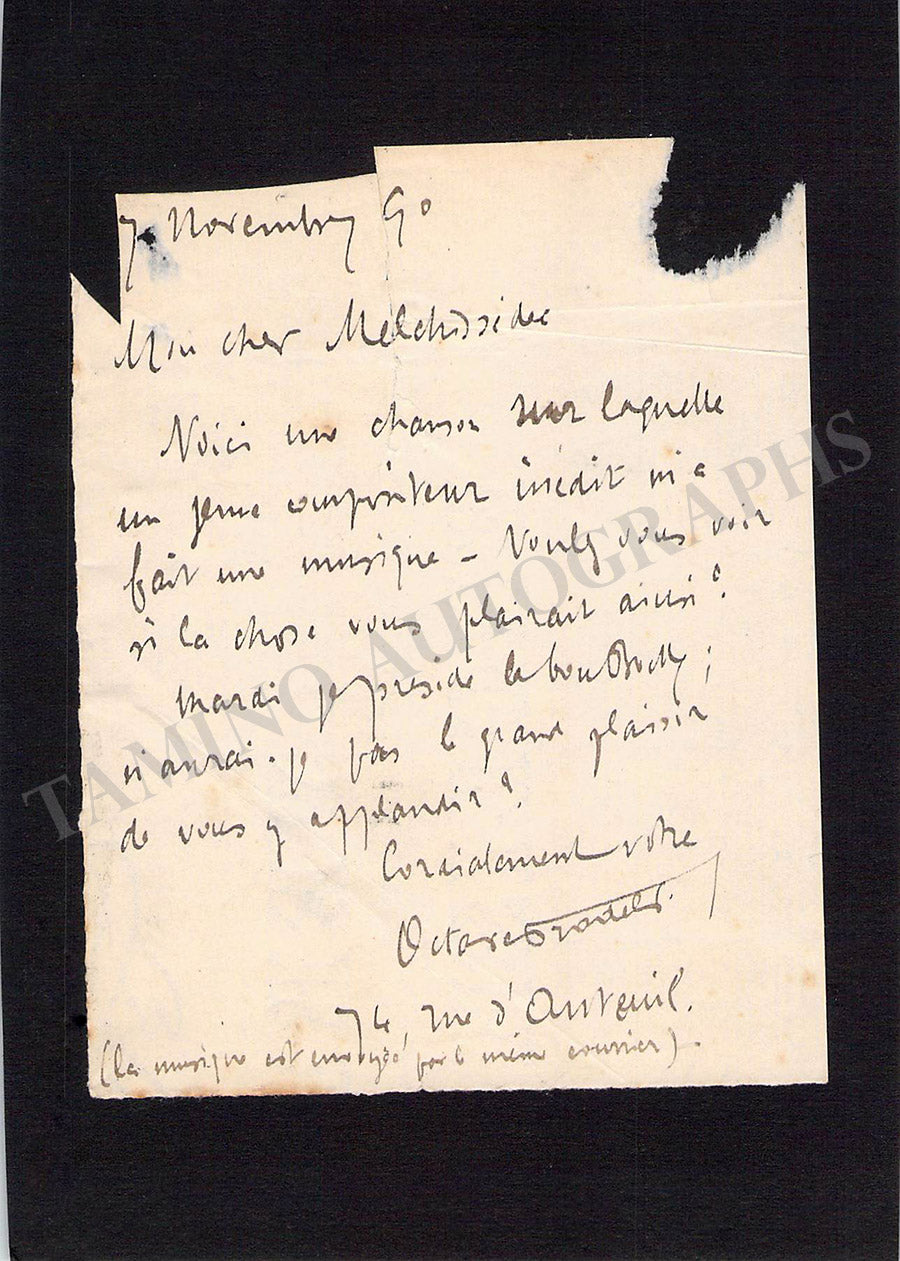 7 Novembre 90
Mon cher Melchissedec
Voici une chanson sur laquelle
un jeune compositeur inédit m'a
fait une musique – Voulez vous voir
si la chose vous plairait ainsi?
Mardi je préside la bou
n'aurai-je pas le grand plaisir
de vous y applaudir?
Cordialement votre
Octave Pradels
74, rue d'Auteuil.
(La musique est envoyée par le même courrier).
TAMINO AUTOGRAPHS